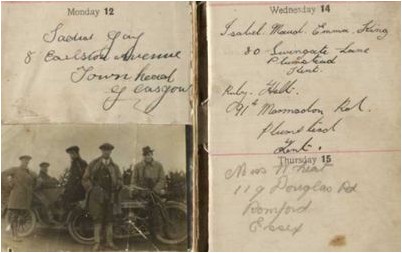 Monday 12
Sadie Gay
8 Earlston Avenue
Townhead
Glasgow
Wednesday 14
Isabel. Maud. Emma. King
80 Swingate Lane
Plumstead
Kent.
Ruby. Hall.
91A Marmadon Rd.
Plumstead
Kent.
Thursday 15
119 Douglas Rd
Romford
Essex